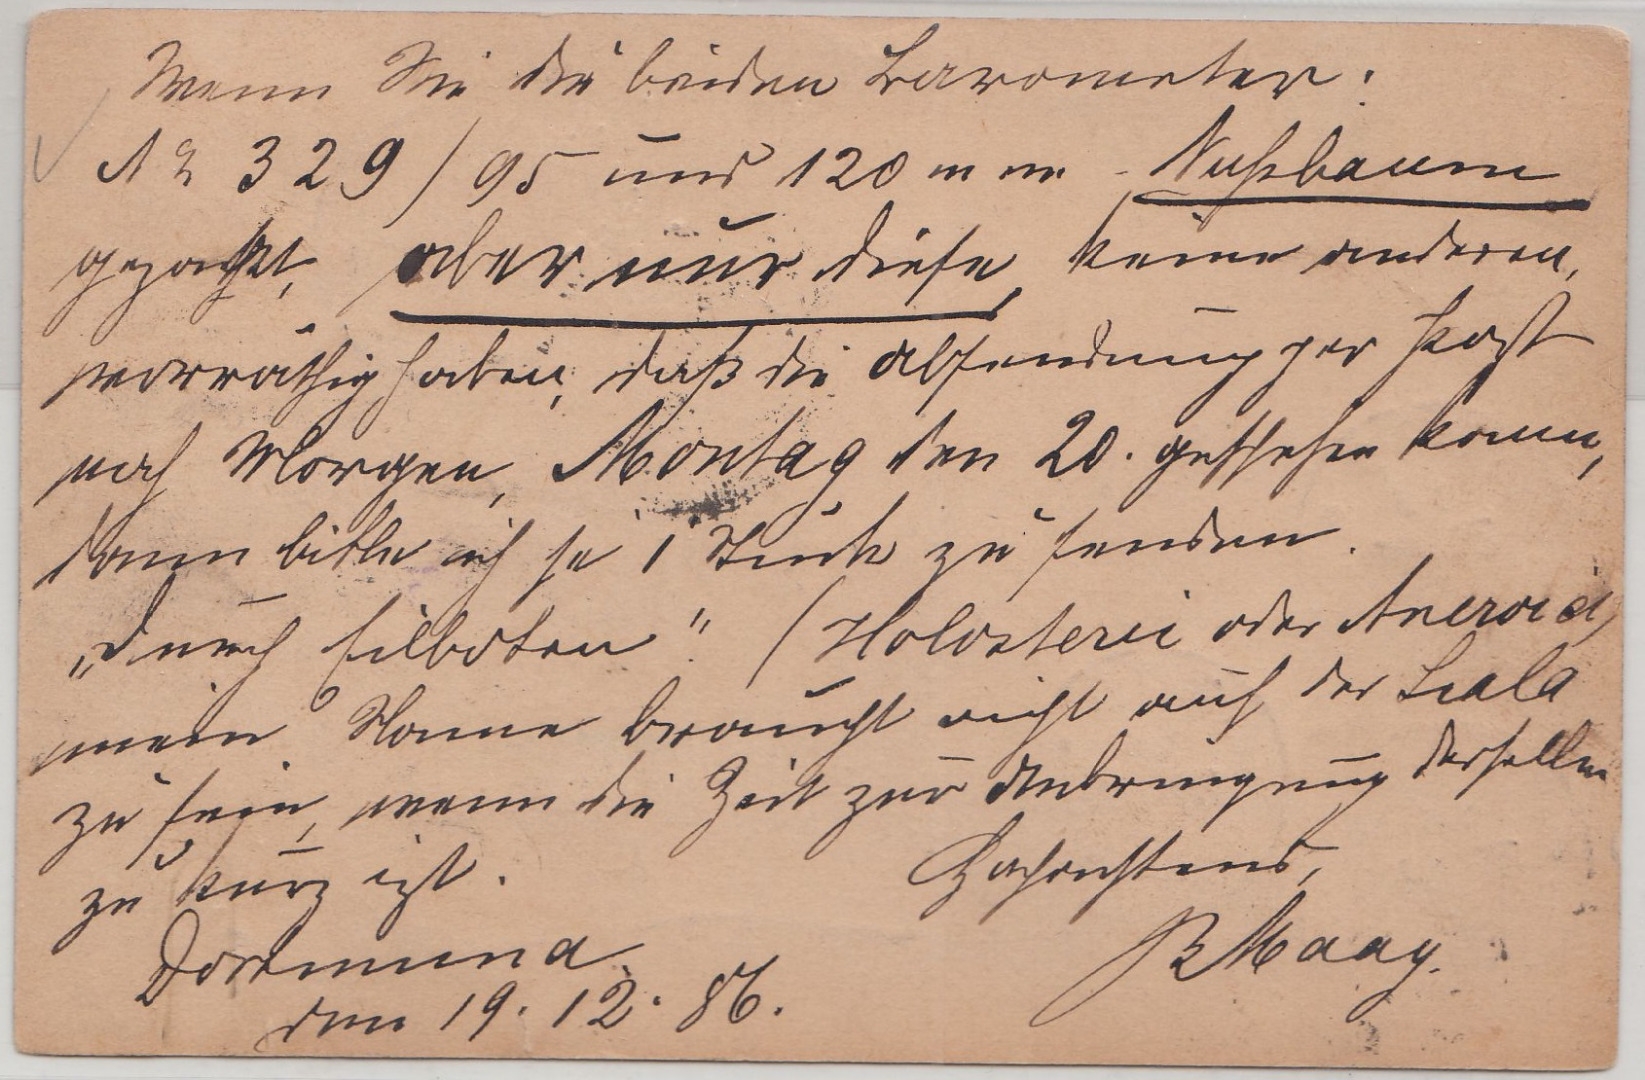 Wenn Sie die beiden Barometer:
No 329/95 und 120 mm - Nußbaum
gezackt, aber nur diese, keine anderen,
vorräthig haben, daß die Absendung per Post
noch Morgen, Montag den 20. geschehen kann,
dann bitte ich je 1 Stück zu senden.
„durch Eilboten." (Holosteric oder Aneroid)
mein Name braucht nicht auf der Scala
zu sein, wenn die Zeit zur Anbringung desselben
zu kurz ist.
Hochachtend,
Dortmund
R Maag.
den 19.12.86.